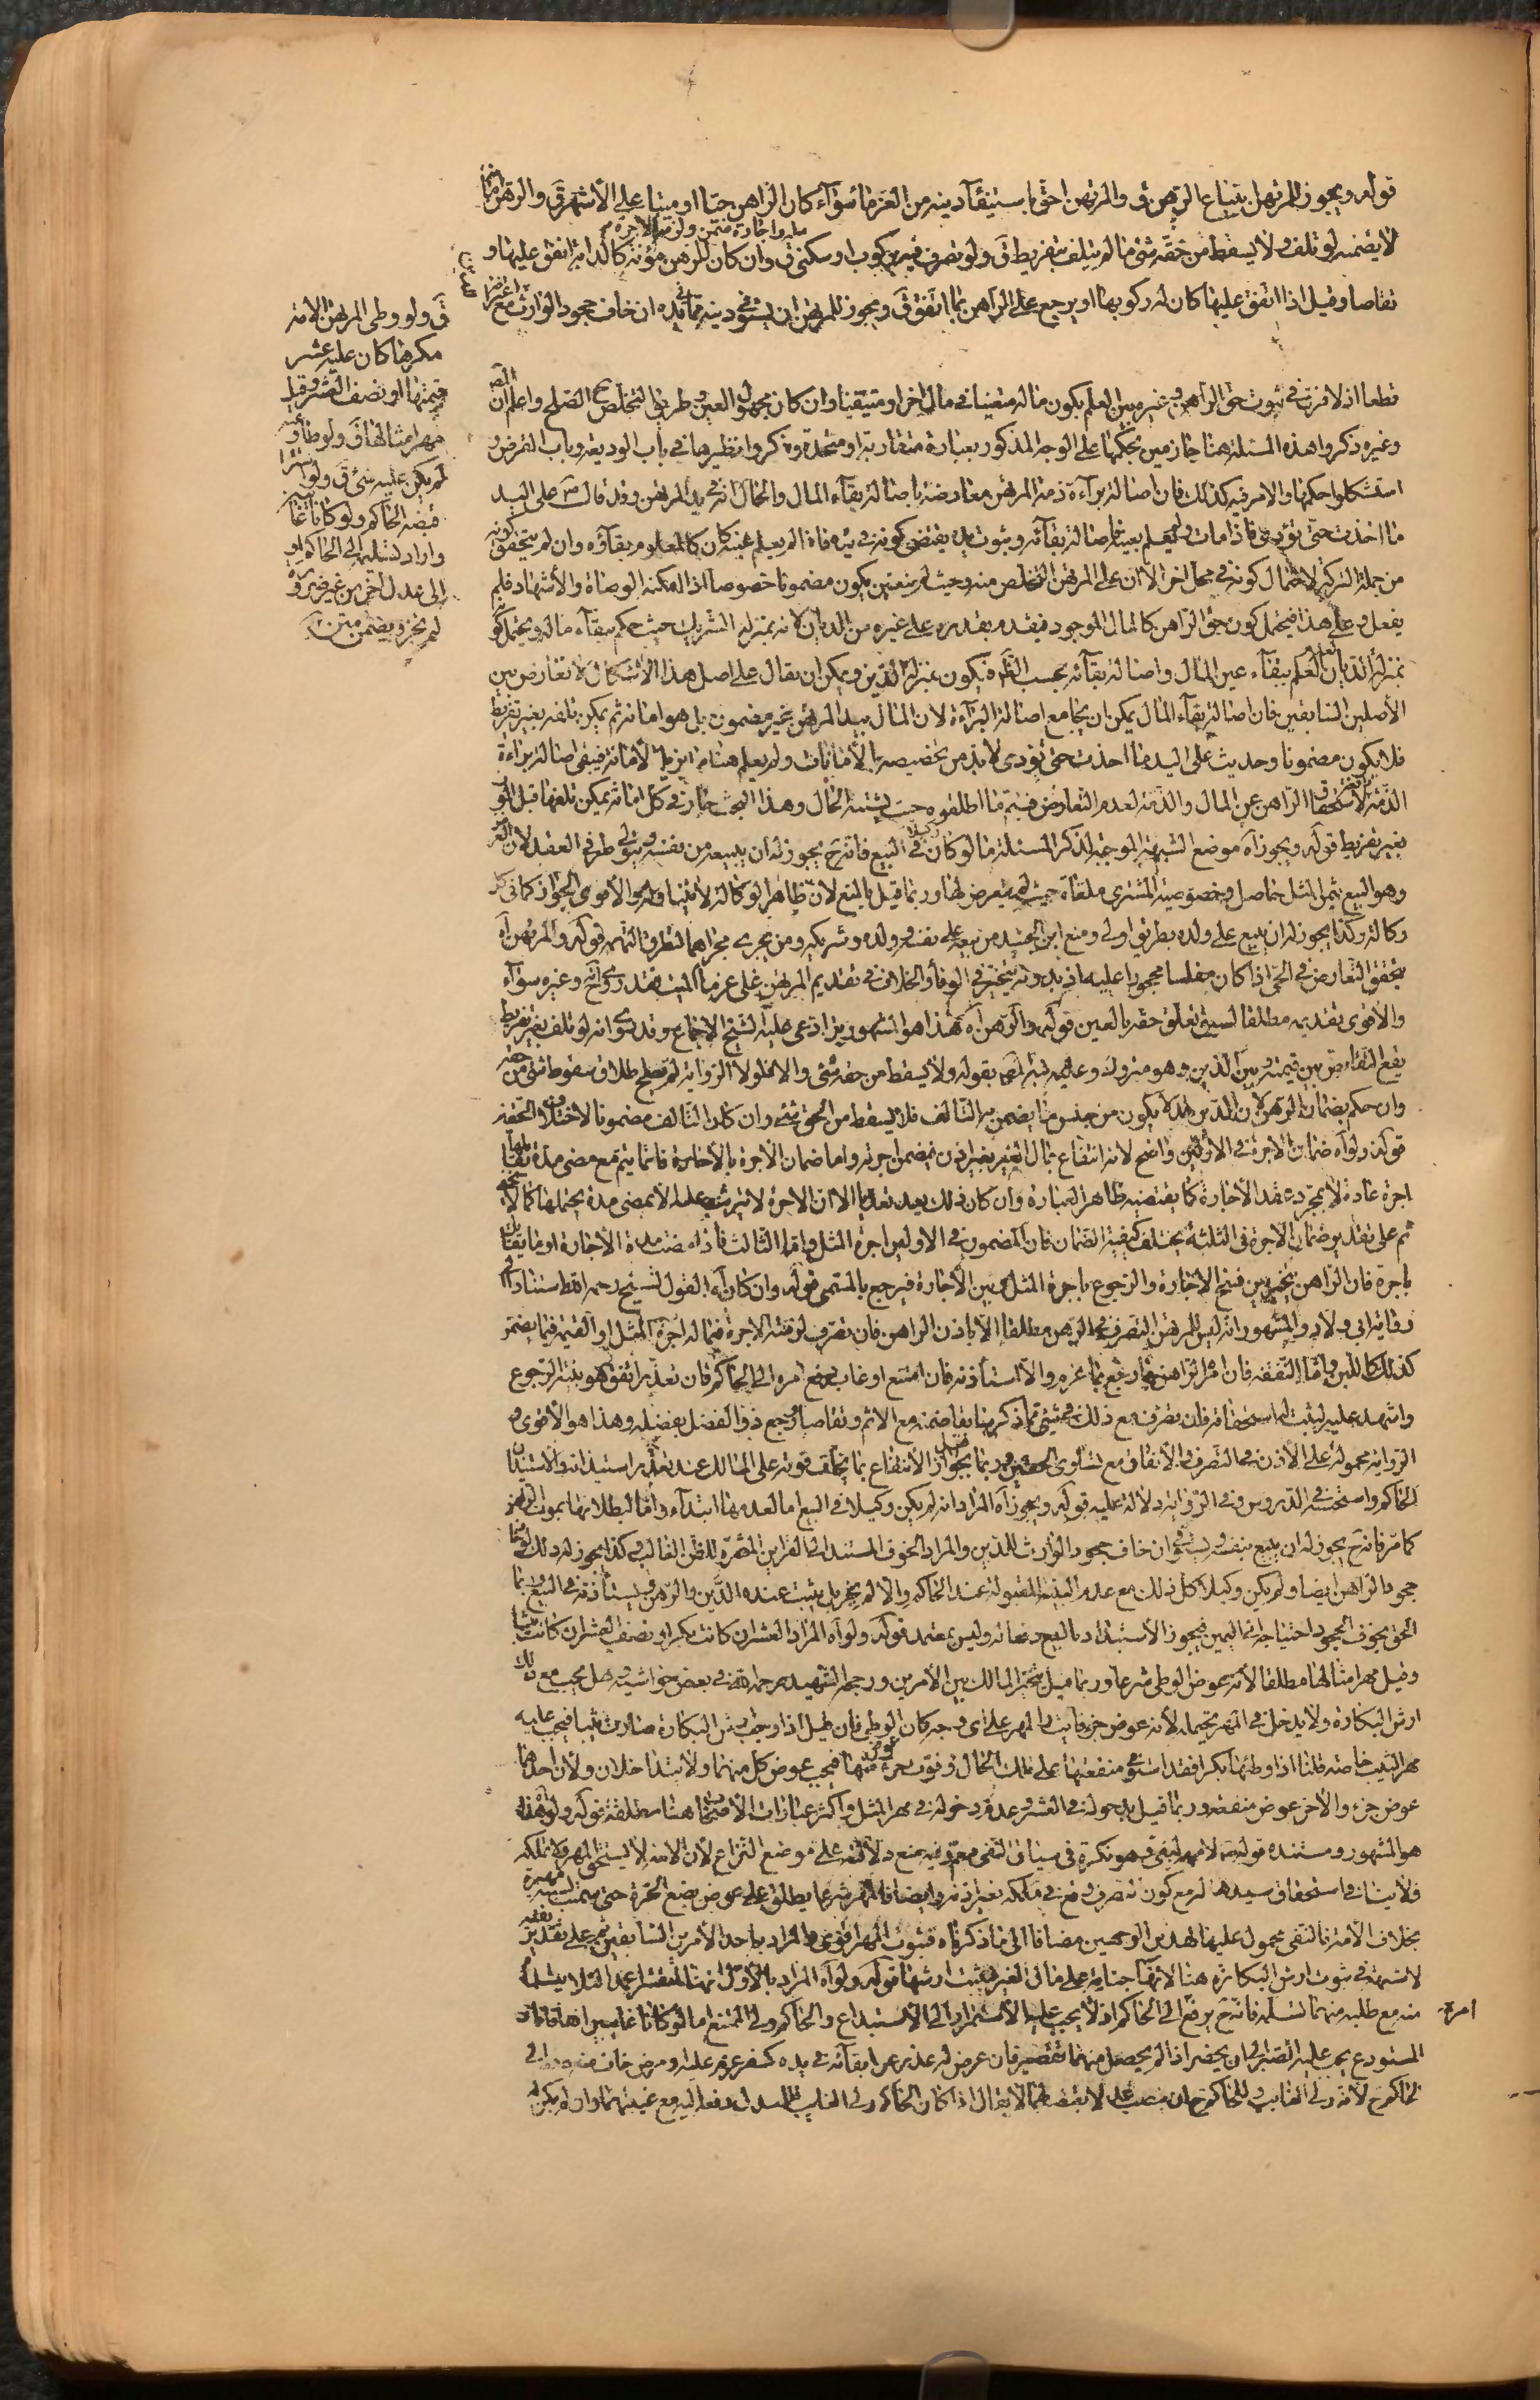 قوله ويجوز للمرتهن ابتياع الرهن ق والمرتهن احق باستيفآء دينه من الغرماء سوآء كان الراهن حيا او ميتا على الأشهر ق والرهن امانة
لا يضمنه لو تلف ولا يسقط من حقه شئ ما لم يتلف بتفريط ق ولو تصرف فيه بركوب او سكنى ق وان كان للرهن مؤنة كالدابة انفق عليها و
تقاصا وقيل اذا انفق عليها كان له ركوبها او يرجع على الراهن بما انفق ق ويجوز للمرتهن ان يستوفي دينه مما في يده ان خاف جحود الوارث مع
قطعا اذ لا فرق في ثبوت حق الراهن وغيره بين العلم بكون ماله متعينا في مال اخر او متيقنا وان كان مجهول العين وطريق التخلص ح الصلح واعلم ان
وغيره ذكروا هذه المسئلة هنا جازمين بحكمها على الوجه المذكور بعبارة متقاربة او متحدة وذكروا نظيرها في باب الوديعة وباب القرض و
استشكلوا حكمها والامر فيه كذلك فان اصالة برآءة ذمة المرتهن معارضة باصالة بقآء المال والحال انه في يد المرتهن وقد قال ص على اليد
ما اخذت حتى تؤدي فاذا مات ولم يعلم بعينه فاصالة بقآئه وثبوت يده يقتضى كونه في يده فاذا لم يعلم عينه كان كالمعلوم بقاؤه وان لم يتحقق كونه
من جملة التركة لاحتمال كونه في محل اخر الا ان على المرتهن التخلص منه وحيث لم يتعين يكون مضمونا خصوصا اذا امكنه الوصاة والأشهاد فلم
يفعل وعلى هذا فيحتمل كون حق الراهن كالمال الموجود فيقدم بقدره على غيره من الديان لانه بمنزلة الشريك حيث حكم ببقآء ماله ويحتمل كونه
بمنزلة الديان لعدم العلم ببقآء عين المال واصالة بقآئه بحسب الظاهر فيكون بمنزلة الدين ويمكن ان يقال على اصل هذا الاشكال لا تعارض بين
الأصلين السابقين فان اصالة بقآء المال يمكن ان يجامع اصالة البرآءة لان المال بيد المرتهن غير مضمون بل هو امانة ثم يمكن تلفه بغير تفريط
فلا يكون مضمونا وحديث على اليد ما اخذت حتى تؤدي لا بد من تخصيصه بالأمانات ولم يعلم هنا ما يزيل الأمانة فيبقى اصالة برآءة
الذمة لاستحقاق الراهن عن المال والذمة لعدم التعارض فيتم ما اطلقوه حيث يشتبه الحال وهذا البحث جار في كل امانة يمكن تلفها قبل الموت
بغير تفريط قوله ويجوز آه موضع الشبهة الموجبة لذكر المسئلة ما لو كان وكيلا في البيع فانه ح يجوز له ان يبيعه من نفسه ويتولى طرفي العقد لان الغرض
وهو البيع بثمن المثل حاصل وخصوصية المشترى ملغاة حيث لم يتعرض لها وربما قيل بالمنع لان ظاهر الوكالة لا يتناوله والأقوى الجواز كما في كل
وكالة وكذا يجوز له ان يبيع على ولده بطريق اولى ومنع ابن الجنيد من بيعه على نفسه وولده وشريكه ومن يجري مجراهما لتطرق التهمة قوله والمرتهن آه
يتحقق التعارض في الحي اذا كان مفلسا محجورا عليه اذ بدونه يتخير في الوفاء والخلاف في تقديم المرتهن على غرماء الميت فقد روى انه وغيره سوآء
والأقوى تقديمه مطلقا لسبق تعلق حقه بالعين قوله والرهن آه هذا هو المشهور بل ادعى عليه الشيخ الاجماع وقد روى انه لو تلف بغير تفريط
يقع التقاص بين قيمته وبين الدين وهو متروك وعليه نبه المصنف بقوله ولا يسقط من حقه شئ والا فلولا الرواية لم يصلح اطلاق سقوط شئ من حقه
وان حكم بضمان الرهن لان الدين قد لا يكون من جنس ما يضمن به التالف فلا يسقط من الحق شئ وان كان التالف مضمونا لاختلاف الحقين
قوله ولو آه ضمان الاجرة في الاولين واضح لانه انتفاع بمال الغير بغير اذن فيضمن اجرته واما ضمان الاجرة بالأجارة فانما يتم مع مضى مدة يقابلها
اجرة عادة لا بمجرد عقد الأجارة كما يقتضيه ظاهر العبارة وان كان ذلك يعد تعديا الا ان الاجرة لا تترتب عليه الا بمضى مدة يحتملها كما لا يخفى
ثم على تقدير ضمان الاجرة في الثلثة يختلف كيفية الضمان فان المضمون في الاولين اجرة المثل واما الثالث فاذا مضت مدة الأجارة او ما يقابل
باجرة فان الراهن يتخير بين فسخ الاجارة والرجوع باجرة المثل وبين الأجارة فيرجع بالمسمى قوله وان كان آه القول للشيخ رحمه الله استنادا الى
رواية ابي ولاد والمشهور انه ليس للمرتهن التصرف في الرهن مطلقا الا باذن الراهن فان تصرف لزمته الاجرة فيما له اجرة والمثل او القيمة فيما يضمن
كذلك كاللبن واما النفقة فان امره الراهن بها رجع بما غرم والا استأذنه فان امتنع او غاب رفع امره الى الحاكم فان تعذر انفق هو بنية الرجوع
واشهد عليه ليثبت له استحقاقه فان تصرف مع ذلك في شئ مما ذكر سابقا ضمنه مع الاثم وتقاصا ورجع ذو الفضل بفضله وهذا هو الأقوى و
الرواية محمولة على الأذن في التصرف والأنفاق مع تساوى الحقين وربما قيل بجواز الأنتفاع بما يخاف فوته على المالك عند تعذر استيذانه والاستيذان
الحاكم واستحسنه في الدروس وفي الرواية دلالة عليه قوله ويجوز آه المراد انه لم يكن وكيلا في البيع اما لعدمها ابتدآء واما لبطلانها بموت الراهن
كما مر فانه ح يجوز له ان يبيع بنفسه ويستوفي ان خاف جحود الوارث للدين والمراد الخوف المستند الى القراين المثمرة للظن الغالب وكذا يجوز له ذلك لو خاف
جحود الراهن ايضا ولم يكن وكيلا كل ذلك مع عدم البينة المقبولة عند الحاكم والا لم يجز بل يثبت عنده الدين والرهن ويستأذنه في البيع وربما
الحق بخوف الجحود احتياجه الى اليمين فيجوز الأستبداد بالبيع دفعا له وليس بمعتمد قوله ولو آه المراد العشر ان كانت بكرا ونصف العشر ان كانت ثيبا
وقيل مهر امثالها مطلقا لأنه عوض الوطى شرعا وربما قيل بتخير المالك بين الأمرين ورجحه الشهيد رحمه الله في بعض حواشيه وهل يجب مع ذلك
ارش البكارة ولا يدخل في المهر يحتمله لأنه عوض جزء فائت والمهر على اي وجه كان للوطى فان قيل اذا وجب ارش البكارة صارت ثيبا فيجب عليه
مهر الثيب خاصة قلنا اذا وطئها بكرا فقد استوفى منفعتها على تلك الحال وفوت جزءا منها فيجب عوض كل منهما ولا يتداخلان ولأن احدهما
عوض جزء والأخر عوض منفعة وربما قيل بدخوله في العشر وعدم دخوله في مهر المثل واكثر عبارات الأصحاب هنا مطلقة قوله ولو هذا
هو المشهور ومستنده قوله ص لا مهر لبغي وهو نكرة في سياق النفي فيعم وفيه يمنع دلالته على موضع النزاع لأن الامة لا يستحق المهر ولا تملكه
فلا ينافي استحقاق سيدها له مع كون التصرف وقع في ملكه بغير اذنه وايضا فالمهر شرعا يطلق على عوض بضع الحرة حتى سميت لسببه مهيرة
بخلاف الأمة فالنفى محمول عليها لهذين الوجهين مضافا الى ما ذكرناه فثبوت المهر اقوى والمراد به احد الأمرين السابقين ثم على تقدير نفيه
لا شبهة في ثبوت ارش البكارة هنا لانها جناية على مال الغير فيثبت ارشها قوله ولو آه المراد بالأول
منه مع طلبه منهما تسلمه فانه ح يرفع الى الحاكم اذ لا يجب عليه الأستمرار الى الأستيداع والحاكم ولي الممتنع اما لو كانا غايبين
المستودع يجب عليه الصبر الى ان يحضر اذا لم يحصل منهما تقصير فان عرض له عذر عن ابقآئه في يده كسفر عزم عليه ومرض خاف منه
الحاكم ح لأنه ولي الغائب
امره
عليه او اجارة ضمن ولزمته الاجرة
ق ولو وطى المرتهن الامة
مكرها كان عليه عشر
قيمتها او نصف العشر وقيل
مهر امثالها ق ولو طاوعته
لم يكن عليه شئ ق ولو
قبضه الحاكم ولو كانا غائبين
واراد تسليمه الى الحاكم او
الى عدل اخر من غير ضرورة
لم يجز ويضمن متن